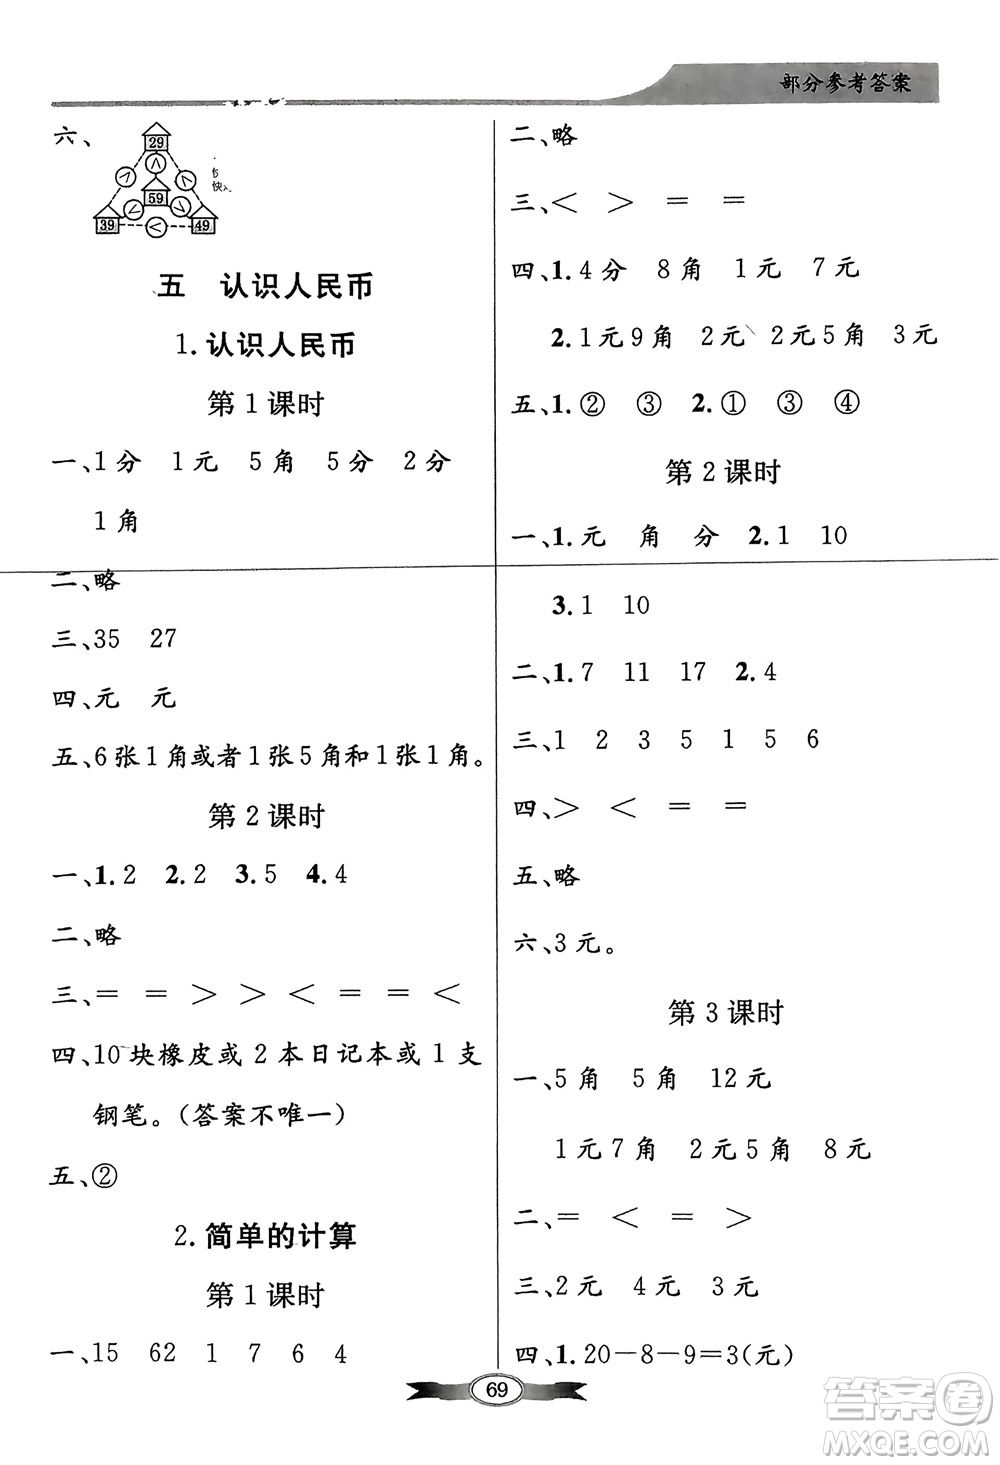 部分参考答案
六、
29
59
39
49
快
五 认识人民币
1.认识人民币
第1课时
一、1分 1元 5角 5分 2分
1角
二、略
三、35 27
四、元 元
五、6张1角或者1张5角和1张1角。
第2课时
一、1.2 2.2 3.5 4.4
二、略
三、= = > > < = = <
四、10块橡皮或2本日记本或1支
钢笔。(答案不唯一)
五、②
2.简单的计算
第1课时
一、15 62 1 7 6 4
二、略
三、< > = =
四、1.4分 8角 1元 7元
2.1元9角 2元 2元5角 3元
五、1.② ③ 2.① ③ ④
第2课时
一、1.元 角 分 2.1 10
3.1 10
二、1.7 11 17 2.4
三、1 2 3 5 1 5 6
四、> < = =
五、略
六、3元。
第3课时
一、5角 5角 12元
1元7角 2元5角 8元
二、= < = >
三、2元 4元 3元
四、1.20-8-9=3(元)
69
答案圈
MXQE.COM